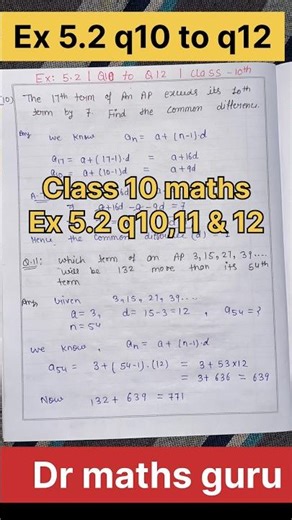 Ex 5.2 q10 to q12
Ex: 5.2 | Q10 to Q.12 | Class - 10th
10) The 17th term of An AP exceeds its 10th
term by 7. Find the common difference.
Ans we know an = a + (n-1)·d
a17 = a + (17-1)·d = a+16d
= a + (10-1)·d = a+9d
Class 10 maths
a+16d - a - 9d = 7
Ex 5.2 q10,11 & 12
Hence the common
Q.11: which term of an AP 3, 15, 27, 39....
will be 132 more than its 54th
term
Ans Given 3, 15, 27, 39...
a = 3, d = 15-3 = 12 , a54 = ?
n = 54
we know, an = a + (n-1)·d
a54 = 3 + (54-1)·(12) = 3 + 53×12
= 3 + 636 = 639
Now 132 + 639 = 771
Dr maths guru